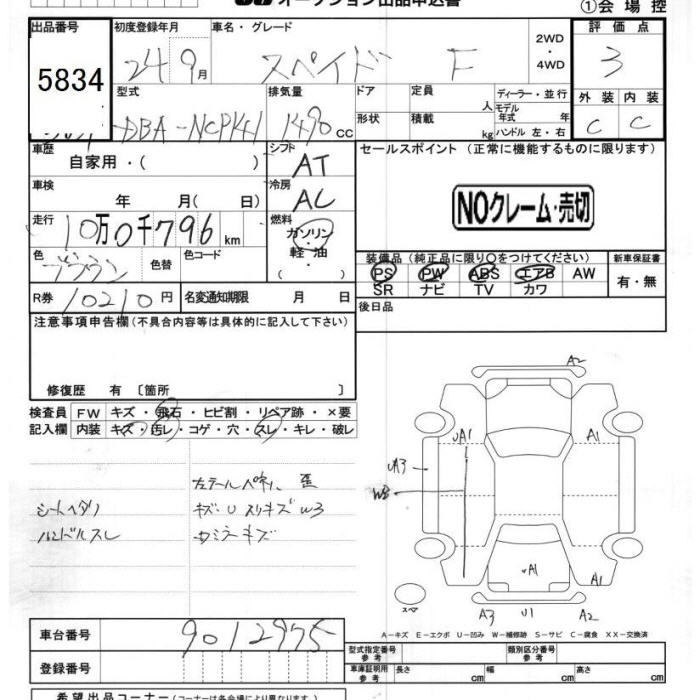 オークション出品申込書
①会場控
出品番号 初度登録年月 車名・グレード 評価点
5834 24 9月 スペイド F 2WD・4WD 3
型式 排気量 ドア 定員 人 ディーラー・並行 外装 内装
DBA-NCP141 1490 cc 形状 積載 kg モデル年式 年式 ハンドル 左・右 C C
車歴 シフト セールスポイント (正常に機能するものに限ります)
自家用・( ) AT
車検 冷房
年 月( 日) AC NOクレーム・売切
走行 燃料
10万0千796 km ガソリン・軽油・( )
色 色替 色コード 装備品 (純正品に限り○をつけてください) 新車保証書
ブラウン PS PW ABS エアB AW 有・無
SR ナビ TV カワ
R券 10210円 名変通知期限 月 日 後日品
注意事項申告欄(不具合内容等は具体的に記入して下さい)
修復歴 有 〔箇所 〕
検査員 FW キズ・飛石・ヒビ割・リペア跡・×要
記入欄 内装 キズ・汚レ・コゲ・穴・スレ・キレ・破レ
左テールパネル 歪
シートヘタリ キズ・U スリキズ W3
ハンドルスレ 左ミラーキズ
A2
UA1 A1
UA3
W3
UA1 A1
スペア A3 U1 A2
A－キズ E－エクボ U－凹み W－補修跡 S－サビ C－腐食 XX－交換済
車台番号 9012975
型式指定番号 参考 類別区分番号 参考
登録番号 車庫証明用 参考 長さ cm 幅 cm 高さ cm
希望出品コーナー (コーナーは各会場により異なります)